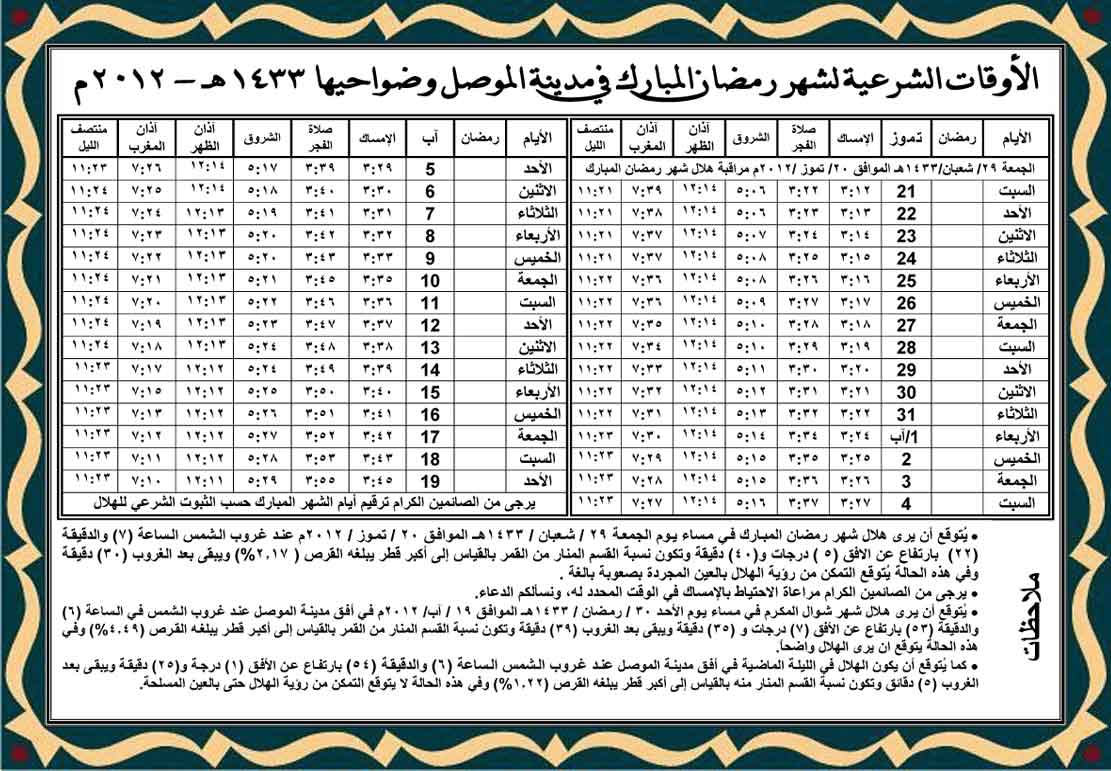 الأوقات الشرعية لشهر رمضان المبارك في مدينة الموصل وضواحيها ١٤٣٣ هـ – ٢٠١٢ م
الأيام رمضان تموز الإمساك صلاة الفجر الشروق آذان الظهر آذان المغرب منتصف الليل
الجمعة ٢٩/ شعبان/١٤٣٣هـ الموافق ٢٠/ تموز /٢٠١٢م مراقبة هلال شهر رمضان المبارك
السبت 21 ٣:١٢ ٣:٢٢ ٥:٠٦ ١٢:١٤ ٧:٣٩ ١١:٢١
الأحد 22 ٣:١٣ ٣:٢٣ ٥:٠٦ ١٢:١٤ ٧:٣٨ ١١:٢١
الاثنين 23 ٣:١٤ ٣:٢٤ ٥:٠٧ ١٢:١٤ ٧:٣٧ ١١:٢١
الثلاثاء 24 ٣:١٥ ٣:٢٥ ٥:٠٨ ١٢:١٤ ٧:٣٧ ١١:٢١
الأربعاء 25 ٣:١٦ ٣:٢٦ ٥:٠٨ ١٢:١٤ ٧:٣٦ ١١:٢٢
الخميس 26 ٣:١٧ ٣:٢٧ ٥:٠٩ ١٢:١٤ ٧:٣٦ ١١:٢٢
الجمعة 27 ٣:١٨ ٣:٢٨ ٥:١٠ ١٢:١٤ ٧:٣٥ ١١:٢٢
السبت 28 ٣:١٩ ٣:٢٩ ٥:١٠ ١٢:١٤ ٧:٣٤ ١١:٢٢
الأحد 29 ٣:٢٠ ٣:٣٠ ٥:١١ ١٢:١٤ ٧:٣٣ ١١:٢٢
الاثنين 30 ٣:٢١ ٣:٣١ ٥:١٢ ١٢:١٤ ٧:٣٢ ١١:٢٢
الثلاثاء 31 ٣:٢٢ ٣:٣٢ ٥:١٣ ١٢:١٤ ٧:٣١ ١١:٢٢
الأربعاء 1/آب ٣:٢٤ ٣:٣٤ ٥:١٤ ١٢:١٤ ٧:٣٠ ١١:٢٣
الخميس 2 ٣:٢٥ ٣:٣٥ ٥:١٥ ١٢:١٤ ٧:٢٩ ١١:٢٣
الجمعة 3 ٣:٢٦ ٣:٣٦ ٥:١٥ ١٢:١٤ ٧:٢٨ ١١:٢٣
السبت 4 ٣:٢٧ ٣:٣٧ ٥:١٦ ١٢:١٤ ٧:٢٧ ١١:٢٣
الأيام رمضان آب الإمساك صلاة الفجر الشروق آذان الظهر آذان المغرب منتصف الليل
الأحد 5 ٣:٢٩ ٣:٣٩ ٥:١٧ ١٢:١٤ ٧:٢٦ ١١:٢٣
الاثنين 6 ٣:٣٠ ٣:٤٠ ٥:١٨ ١٢:١٤ ٧:٢٥ ١١:٢٤
الثلاثاء 7 ٣:٣١ ٣:٤١ ٥:١٩ ١٢:١٣ ٧:٢٤ ١١:٢٤
الأربعاء 8 ٣:٣٢ ٣:٤٢ ٥:٢٠ ١٢:١٣ ٧:٢٣ ١١:٢٤
الخميس 9 ٣:٣٣ ٣:٤٣ ٥:٢٠ ١٢:١٣ ٧:٢٢ ١١:٢٤
الجمعة 10 ٣:٣٥ ٣:٤٥ ٥:٢١ ١٢:١٣ ٧:٢١ ١١:٢٤
السبت 11 ٣:٣٦ ٣:٤٦ ٥:٢٢ ١٢:١٣ ٧:٢٠ ١١:٢٤
الأحد 12 ٣:٣٧ ٣:٤٧ ٥:٢٣ ١٢:١٣ ٧:١٩ ١١:٢٤
الاثنين 13 ٣:٣٨ ٣:٤٨ ٥:٢٤ ١٢:١٣ ٧:١٨ ١١:٢٤
الثلاثاء 14 ٣:٣٩ ٣:٤٩ ٥:٢٤ ١٢:١٢ ٧:١٧ ١١:٢٣
الأربعاء 15 ٣:٤٠ ٣:٥٠ ٥:٢٥ ١٢:١٢ ٧:١٥ ١١:٢٣
الخميس 16 ٣:٤١ ٣:٥١ ٥:٢٦ ١٢:١٢ ٧:١٣ ١١:٢٣
الجمعة 17 ٣:٤٢ ٣:٥٢ ٥:٢٧ ١٢:١٢ ٧:١٢ ١١:٢٣
السبت 18 ٣:٤٣ ٣:٥٣ ٥:٢٨ ١٢:١٢ ٧:١١ ١١:٢٣
الأحد 19 ٣:٤٥ ٣:٥٥ ٥:٢٩ ١٢:١١ ٧:١٠ ١١:٢٣
يرجى من الصائمين الكرام ترقيم أيام الشهر المبارك حسب الثبوت الشرعي للهلال
ملاحظات
• يُتوقع أن يرى هلال شهر رمضان المبارك في مساء يوم الجمعة ٢٩ / شعبان / ١٤٣٣هـ الموافق ٢٠ / تموز / ٢٠١٢م عند غروب الشمس الساعة (٧) والدقيقة
(٢٢) بارتفاع عن الافق (٥) درجات و(٤٠) دقيقة وتكون نسبة القسم المنار من القمر بالقياس إلى أكبر قطر يبلغه القرص (٢.١٧%) ويبقى بعد الغروب (٣٠) دقيقة
وفي هذه الحالة يُتوقع التمكن من رؤية الهلال بالعين المجردة بصعوبة بالغة .
• يرجى من الصائمين الكرام مراعاة الاحتياط بالإمساك في الوقت المحدد له، ونسألكم الدعاء.
• يُتوقع أن يرى هلال شهر شوال المكرم في مساء يوم الأحد ٣٠ / رمضان / ١٤٣٣هـ الموافق ١٩ / آب/ ٢٠١٢م في أفق مدينة الموصل عند غروب الشمس في الساعة (٦)
والدقيقة (٥٣) بارتفاع عن الأفق (٧) درجات و (٣٥) دقيقة ويبقى بعد الغروب (٣٩) دقيقة وتكون نسبة القسم المنار من القمر بالقياس إلى أكبر قطر يبلغه القرص (٤.٤٩%) وفي
هذه الحالة يتوقع ان يرى الهلال واضحاً.
• كما يُتوقع أن يكون الهلال في الليلة الماضية في أفق مدينة الموصل عند غروب الشمس الساعة (٦) والدقيقة (٥٤) بارتفاع عن الأفق (١) درجة و(٢٥) دقيقة ويبقى بعد
الغروب (٥) دقائق وتكون نسبة القسم المنار منه بالقياس إلى أكبر قطر يبلغه القرص (١.٢٢%) وفي هذه الحالة لا يتوقع التمكن من رؤية الهلال حتى بالعين المسلحة.